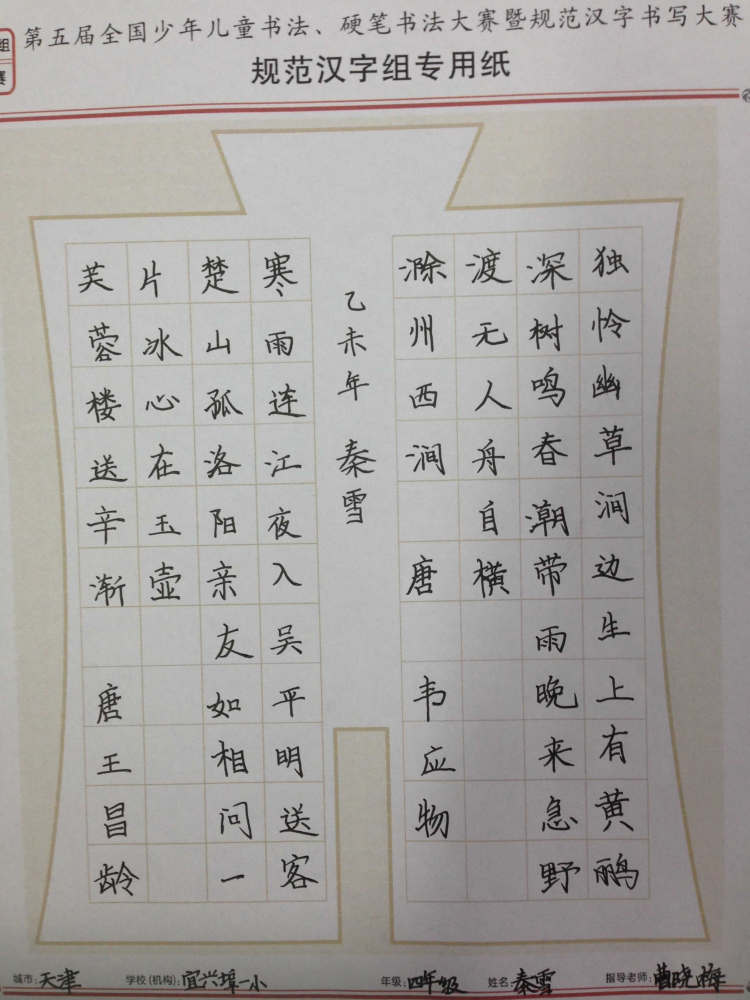 第五届全国少年儿童书法、硬笔书法大赛暨规范汉字书写大赛
组
赛
规范汉字组专用纸
独怜幽草涧边生上有黄鹂
深树鸣春潮带雨晚来急野
渡无人舟自横
滁州西涧 唐 韦应物
乙未年 秦雪
寒雨连江夜入吴平明送客
楚山孤洛阳亲友如相问一
片冰心在玉壶
芙蓉楼送辛渐 唐王昌龄
城市:天津 学校(机构):宜兴埠一小 年级:四年级 姓名:秦雪 指导老师:曹晓梅